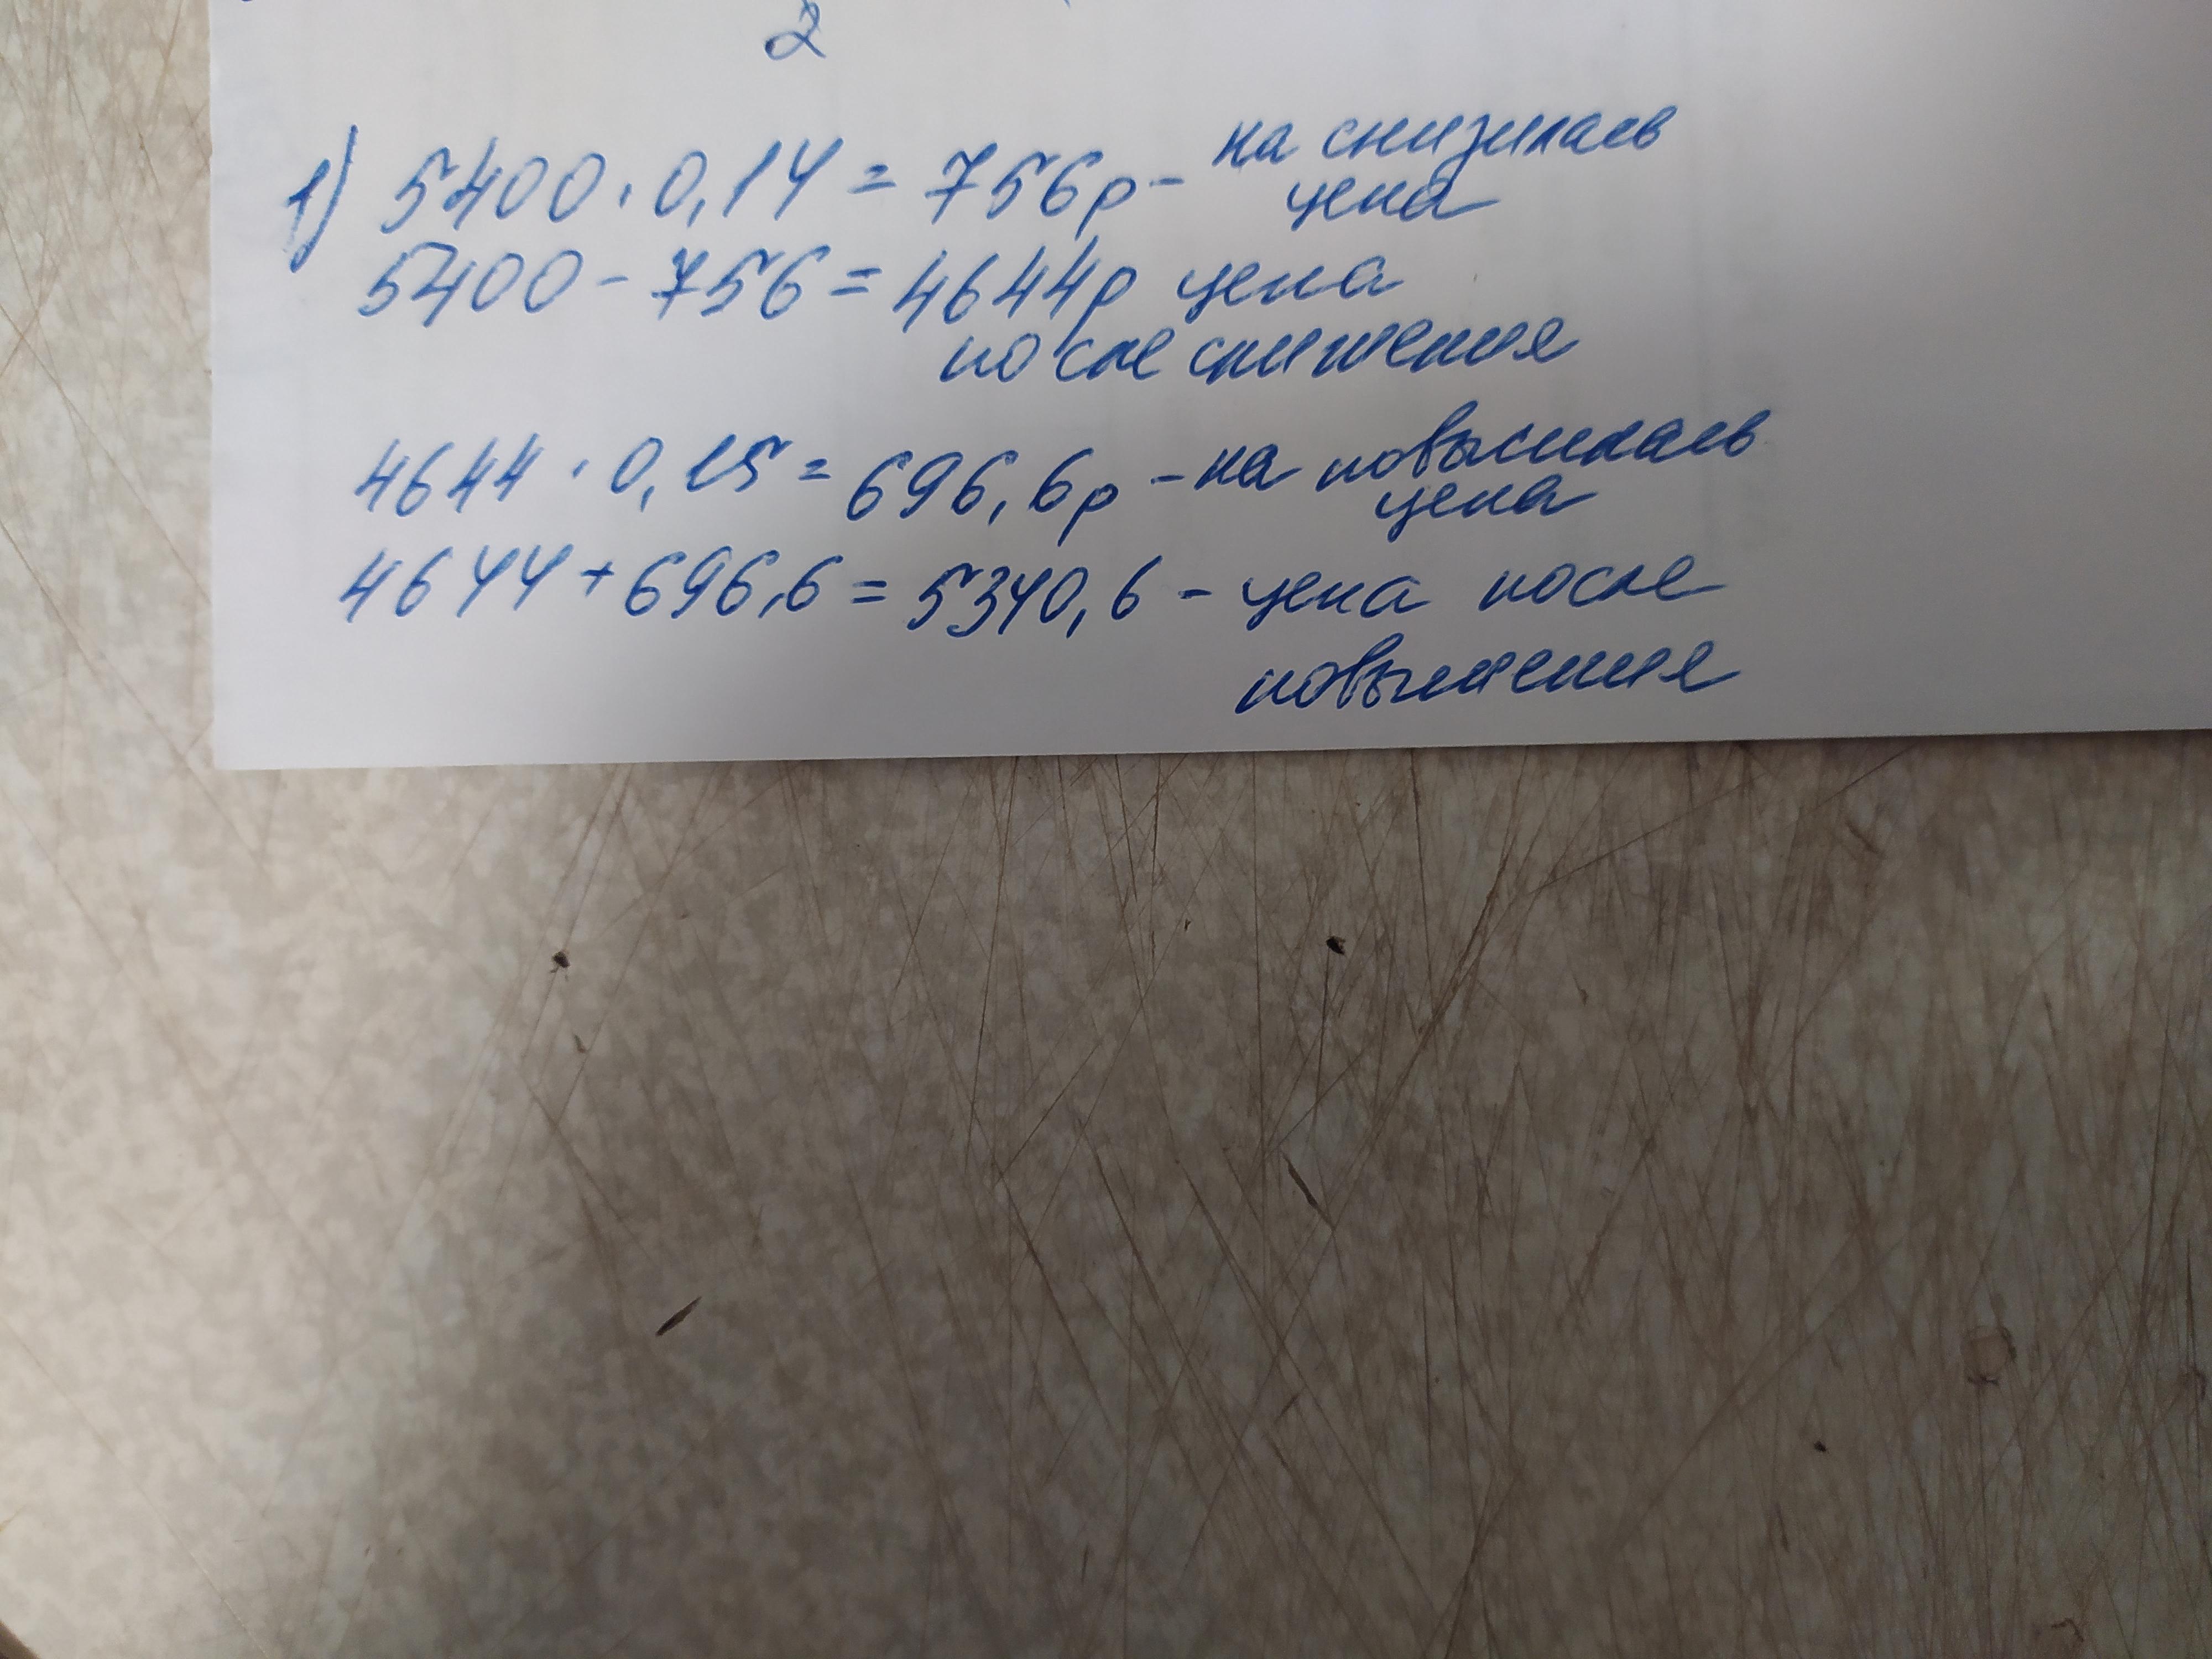 2
1) 5400 · 0,14 = 756р - на снизилась
цена
5400 - 756 = 4644р цена
после снижения
4644 · 0,15 = 696,6р - на повысилась
цена
4644 + 696,6 = 5340,6 - цена после
повышения